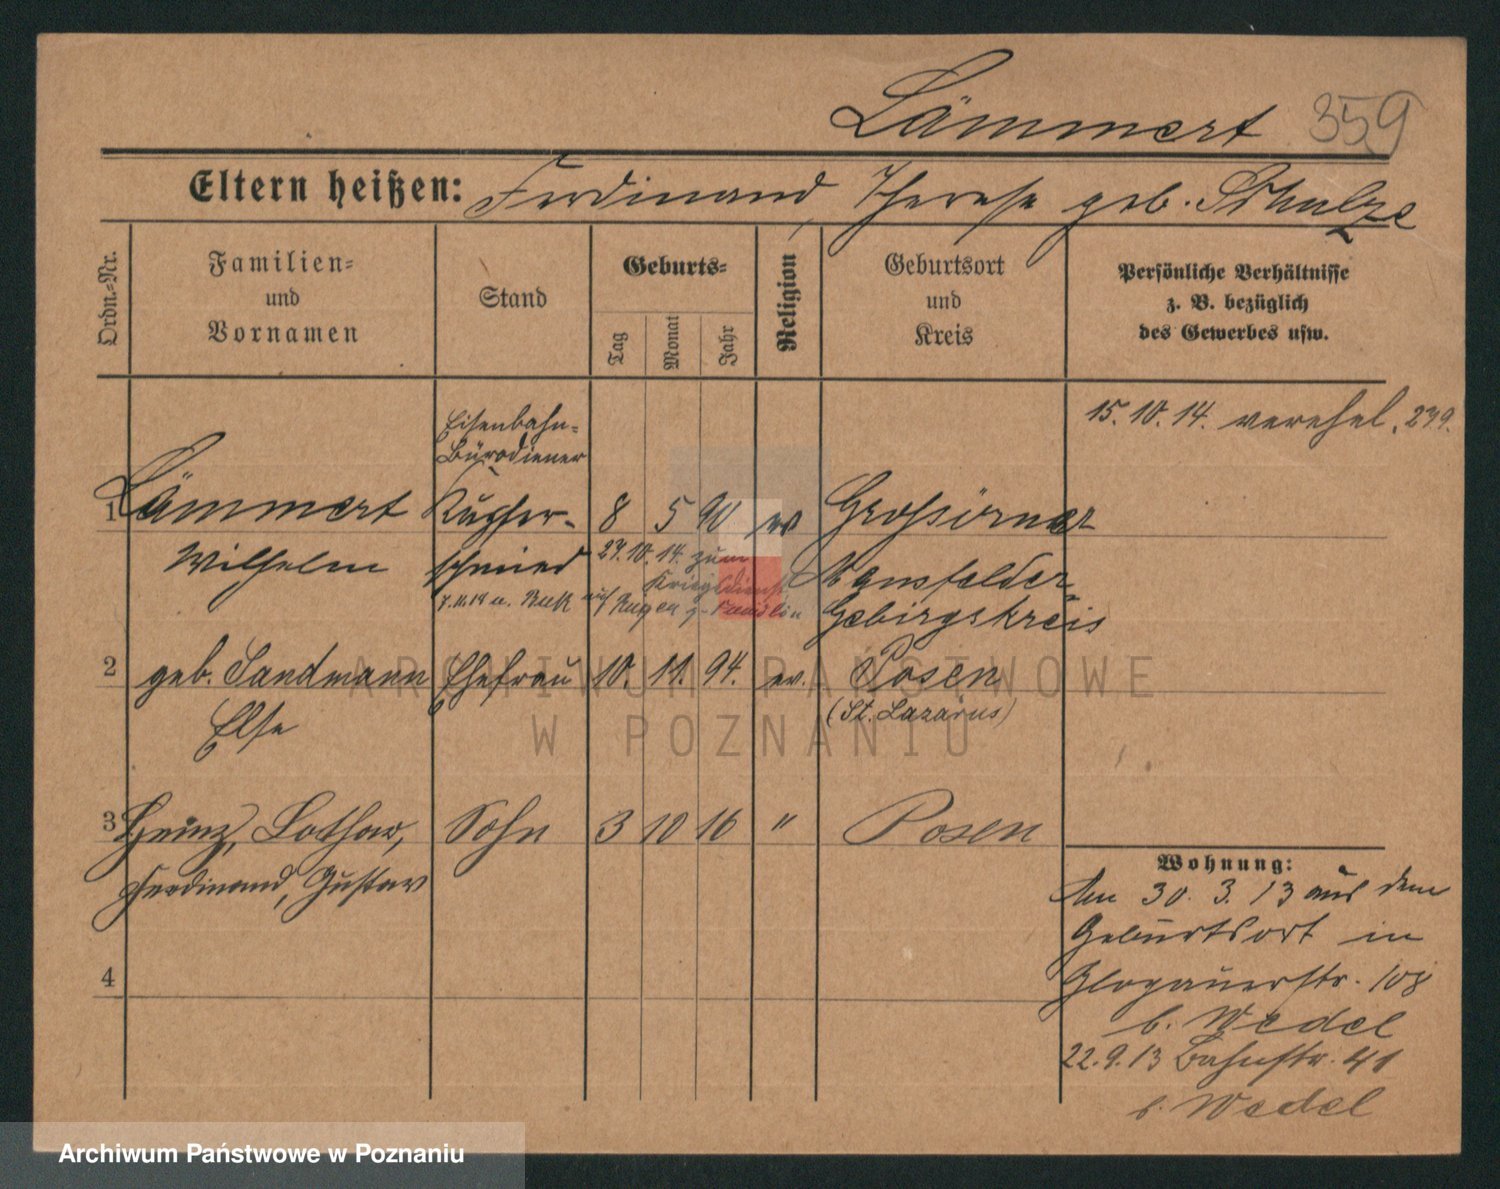 Lämmert 359
Eltern heißen: Ferdinand, Therese geb. Schulze
Ordn.-Nr.
Familien-
und
Vornamen
Stand
Geburts-
Tag
Monat
Jahr
Religion
Geburtsort
und
Kreis
Persönliche Verhältnisse
z. B. bezüglich
des Gewerbes usw.
15.10.14. verehel. 279.
Eisenbahn-
Bürodiener
1 Lämmert Kupfer- 8 5 90 ev Großörner
Wilhelm schmied Mansfelder
27.10.14. zum
Gebirgskreis
2 geb. Sandmann Ehefrau 10. 11. 94. ev. Posen
Else (St. Lazarus)
3 Heinz, Lothar, Sohn 3 10 16 " Posen
Ferdinand, Gustav
4
Wohnung:
Am 30. 3. 13 aus dem
Geburtsort in
Glogauerstr. 108
b. Wedel
22.9.13 Bahnstr. 41
b. Wedel
ARCHIWUM PAŃSTWOWE
W POZNANIU
Archiwum Państwowe w Poznaniu